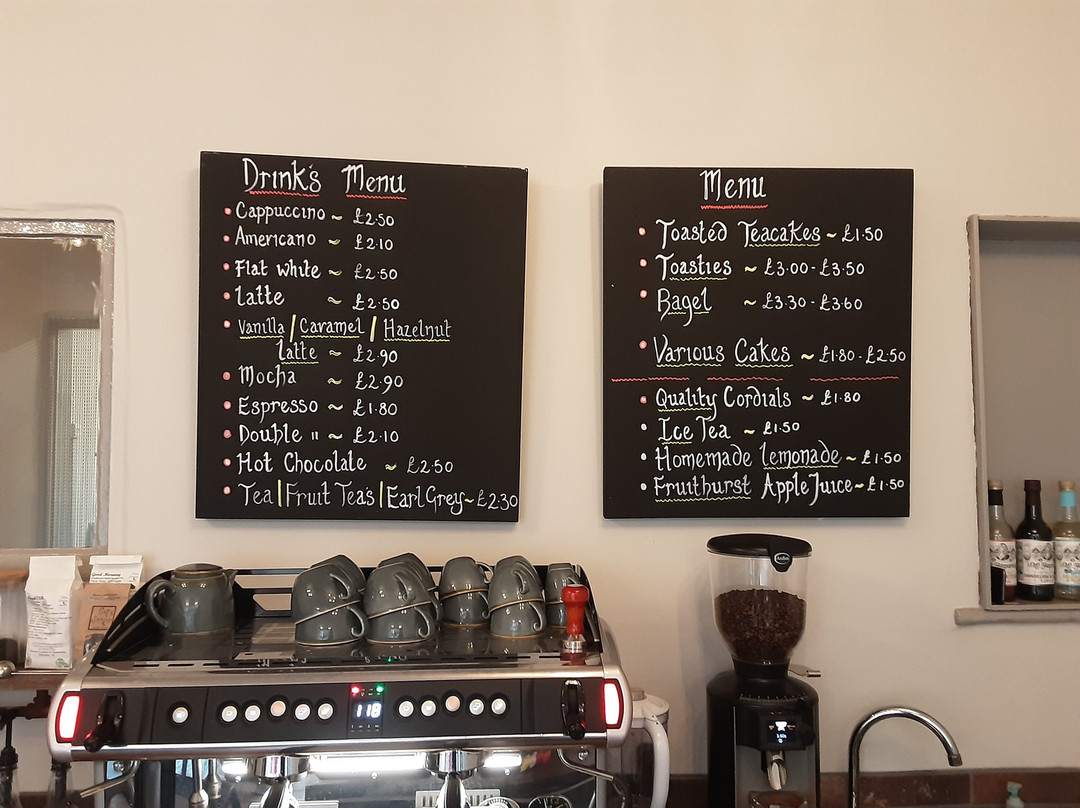 Drink's Menu
Cappuccino ~ £2.50
Americano ~ £2.10
Flat white ~ £2.50
Latte ~ £2.50
Vanilla / Caramel / Hazelnut
Latte ~ £2.90
Mocha ~ £2.90
Espresso ~ £1.80
Double " ~ £2.10
Hot Chocolate ~ £2.50
Tea | Fruit Tea's | Earl Grey ~ £2.30
Menu
Toasted Teacakes ~ £1.50
Toasties ~ £3.00 - £3.50
Bagel ~ £3.30 - £3.60
Various Cakes ~ £1.80 - £2.50
Quality Cordials ~ £1.80
Ice Tea ~ £1.50
Homemade Lemonade ~ £1.50
Fruithurst Apple Juice ~ £1.50
118